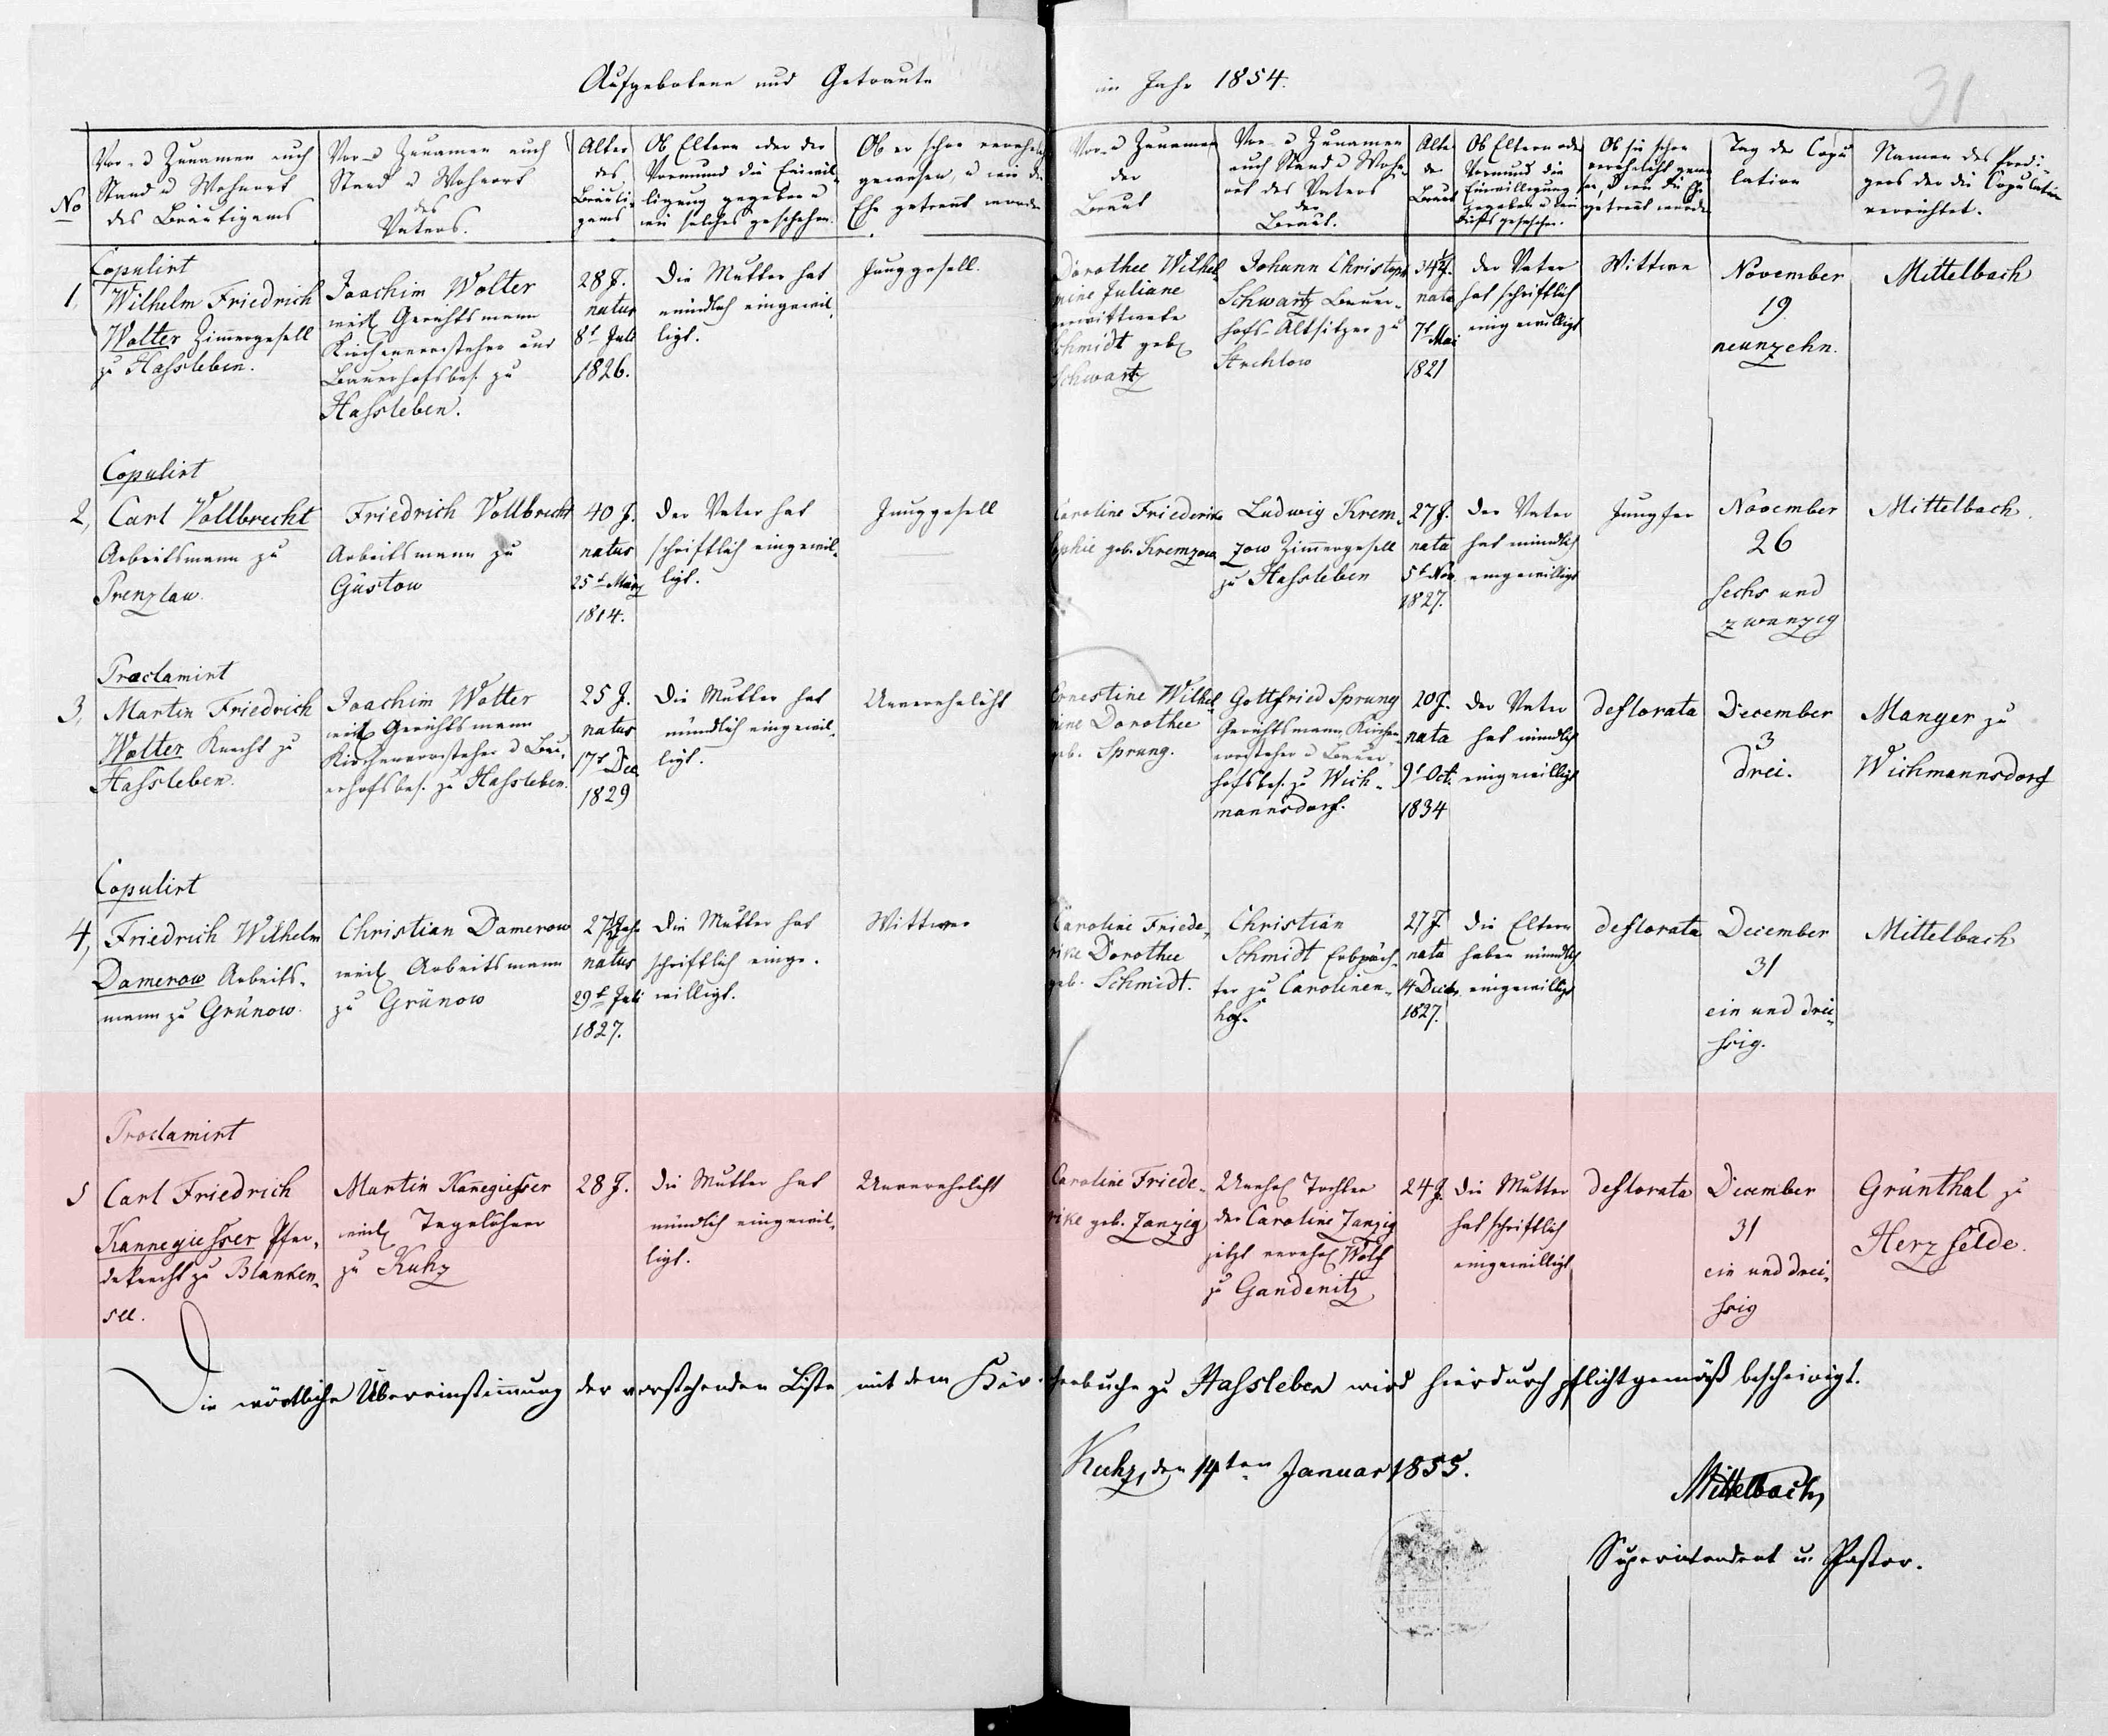 Aufgebotene und Getraute im Jahr 1854.
31
No
Vor- u Zunamen auch
Stand u Wohnort
des Bräutigams
Vor- u Zunamen auch
Stand u Wohnort
des
Vaters.
Alter
des
Bräuti-
gams
Ob Eltern oder der
Vormund die Einwil-
ligung gegeben u
wie solches geschehen.
Ob er schon verehel
gewesen, u wie die
Ehe getrennt worden
Vor- u Zunamen
der
Braut
Vor- u Zunamen
auch Stand u Wohn-
ort des Vaters
der
Braut.
Alte
de
Braut
Ob Eltern ode
Vormund die
Einwilligung
gegeben u wie
dieß geschehen.
Ob sie schon
verehelicht gewe
sen, u wie die Ehe
getrennt worden
Tag der Copu
lation
Namen des Predi-
gers der die Copulation
verrichtet.
Copulirt
1,
Wilhelm Friedrich
Wolter Zimmergesell
zu Hassleben.
Joachim Wolter
weil Gerichtsmann
Kirchenvorsteher und
Bauerhofsbes. zu
Hassleben.
28 J.
natus
8t Juli
1826.
Die Mutter hat
mündlich eingewil-
ligt.
Junggesell.
Dorothee Wilhel
mine Juliane
verwittwete
Schmidt geb
Schwartz
Johann Christoph
Schwartz Bauer-
hofs-Altsitzer zu
Strehlow
34 J.
nata
7t Mai
1821
der Vater
hat schriftlich
eingewilligt
Wittwe
November
19
neunzehn.
Mittelbach
Copulirt
2,
Carl Vollbrecht
Arbeitsmann zu
Prenzlau.
Friedrich Vollbrecht
Arbeitsmann zu
Güstow
40 J.
natus
25t März
1814.
Der Vater hat
schriftlich eingewil-
ligt.
Junggesell
Caroline Friederike
Sophie geb. Kremzow
Ludwig Krem-
zow Zimmergesell
zu Hassleben
27 J.
nata
5t Nov.
1827.
Der Vater
hat mündlich
eingewilligt
Jungfer
November
26
sechs und
zwanzig
Mittelbach.
Proclamirt
3,
Martin Friedrich
Wolter Knecht zu
Hassleben.
Joachim Wolter
weil Gerichtsmann
Kirchenvorsteher u Bau-
erhofsbes. zu Hassleben.
25 J.
natus
17t Dec
1829
Die Mutter hat
mündlich eingewil-
ligt.
Unverehelicht
Ernestine Wilhel
mine Dorothee
geb. Sprung.
Gottfried Sprung
Gerichtsmann, Kirchen-
vorsteher u Bauer-
hofsbes. zu Wich-
mannsdorf.
20 J.
nata
9t Oct.
1834
der Vater
hat mündlich
eingewilligt
deflorata
December
3
drei.
Manger zu
Wichmannsdorf
Copulirt
4,
Friedrich Wilhelm
Damerow Arbeits-
mann zu Grünow.
Christian Damerow
weil Arbeitsmann
zu Grünow
natus
29t Juli
1827.
Die Mutter hat
schriftlich einge-
willigt.
Wittwer
Caroline Friede-
rike Dorothee
geb. Schmidt.
Christian
Schmidt Erbpäch-
ter zu Carolinen-
hof.
27 J
nata
1827.
die Eltern
haben mündlich
eingewilligt
deflorata
December
31
ein und drei-
ßig.
Mittelbach
Proclamirt
5
Carl Friedrich
Kannegiesser Pfer-
deknecht zu Blanken-
see.
Martin Kanegiesser
weil Tagelöhner
zu Kuhz
28 J.
Die Mutter hat
mündlich eingewil-
ligt.
Unverehelicht
Caroline Friede-
rike geb. Janzig
Unehel Tochter
der Caroline Janzig
jetzt verehel Wolf
zu Gandenitz
24 J
die Mutter
hat schriftlich
eingewilligt
deflorata
December
31
ein und drei-
ßig
Grünthal zu
Herzfelde.
Die wörtliche Übereinstimmung der vorstehenden Liste mit dem Kirchenbuche zu Hassleben wird hierdurch pflichtgemäß bescheinigt.
Kuhz, den 14ten Januar 1855.
Mittelbach,
Superintendent u. Pastor.